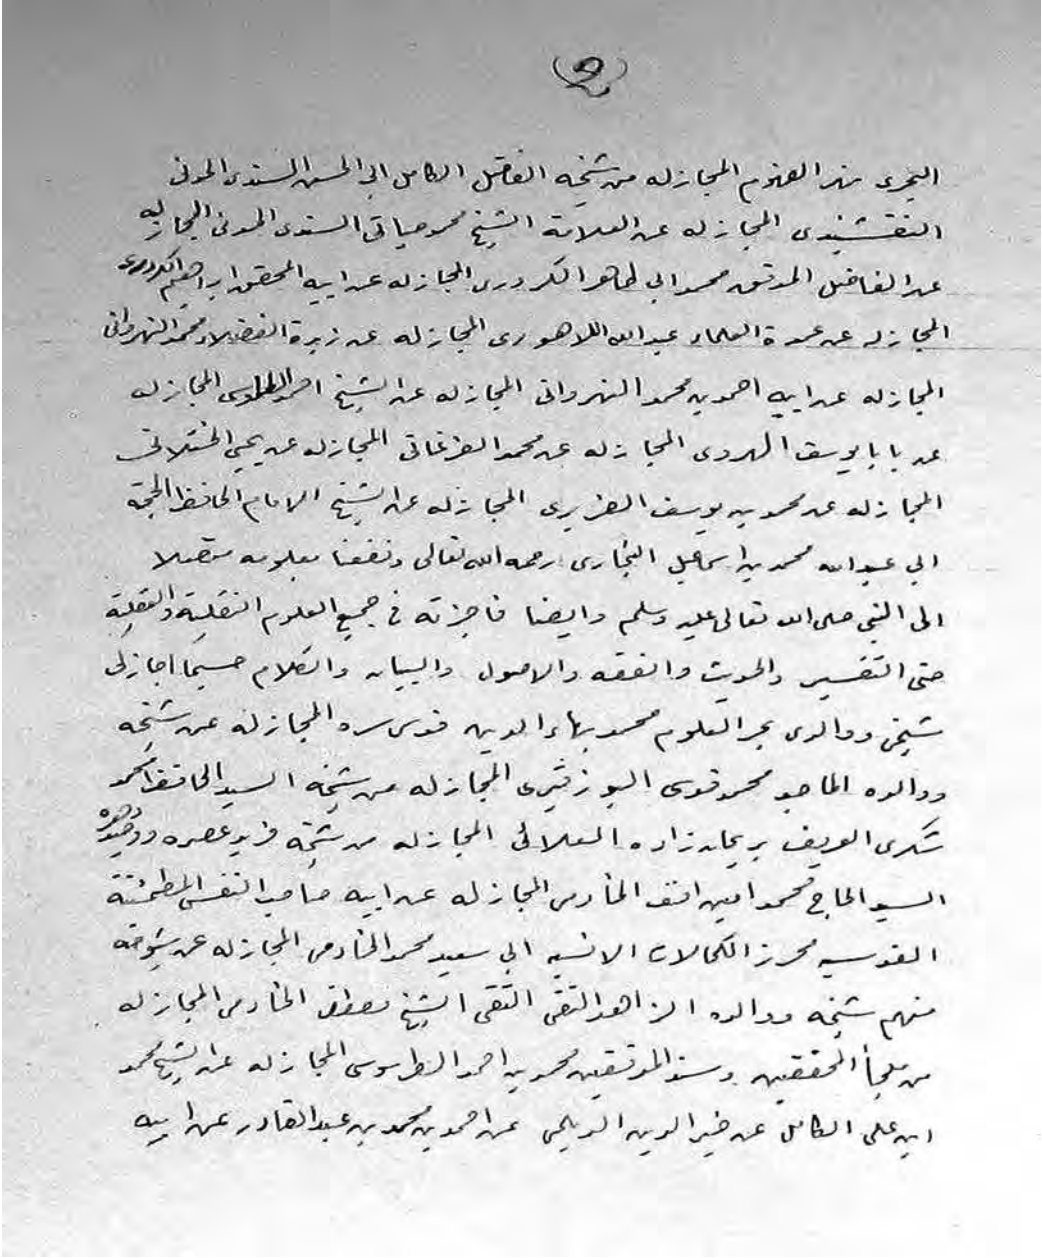 (2)
المجاز له من شيخه الفاضل الكامل ابى الحسن السندى المدنى
النقشبندى المجاز له عن العلامة الشيخ محمد حياتى السندى المدنى المجاز له
عن الفاضل المدقق محمد ابى طاهر الكردرى المجاز له عن ابيه المحقق ابراهيم الكردرى
المجاز له عن عمدة العلماء عبد الله اللاهورى المجاز له عن زبدة الفضلاء محمد النهروانى
المجاز له عن ابيه احمد بن محمد النهروانى المجاز له عن الشيخ احمد المجاز له
عن بابا يوسف الهروى المجاز له عن محمد الفرغانى المجاز له عن يحيى الختلانى
المجاز له عن محمد بن يوسف الفربرى المجاز له عن الشيخ الامام الحافظ الحجة
ابى عبد الله محمد بن اسماعيل البخارى رحمه الله تعالى ونفعنا بعلومه متصلا
الى النبى صلى الله تعالى عليه وسلم وايضا فاجزته فى جميع العلوم النقلية والعقلية
حتى التفسير والحديث والفقه والاصول والبيان والكلام حسبما اجازلى
شيخى ووالدى بحر العلوم محمد بهاء الدين قدس سره المجاز له عن شيخه
ووالده الماجد محمد قدسى البوزقيرى المجاز له من شيخه السيد الحافظ احمد
شكرى العريف بريحان زاده العلائى المجاز له من شيخه فريد عصره ووحيد دهره
السيد الحاج محمد امين افند الخادمى المجاز له عن ابيه صاحب النفس المطمئنة
القدسيه محرز الكمالات الانسيه ابى سعيد محمد الخادمى المجاز له عن شيوخه
منهم شيخه ووالده الزاهد التقى النقى الشيخ مصطفى الخادمى المجاز له
من ملجأ المحققين وسند المدققين محمد بن احمد الطرسوسى المجاز له عن الشيخ محمد
ابن على الكامل عن خير الدين الرملى عن احمد بن محمد بن عبد القادر عن ابيه